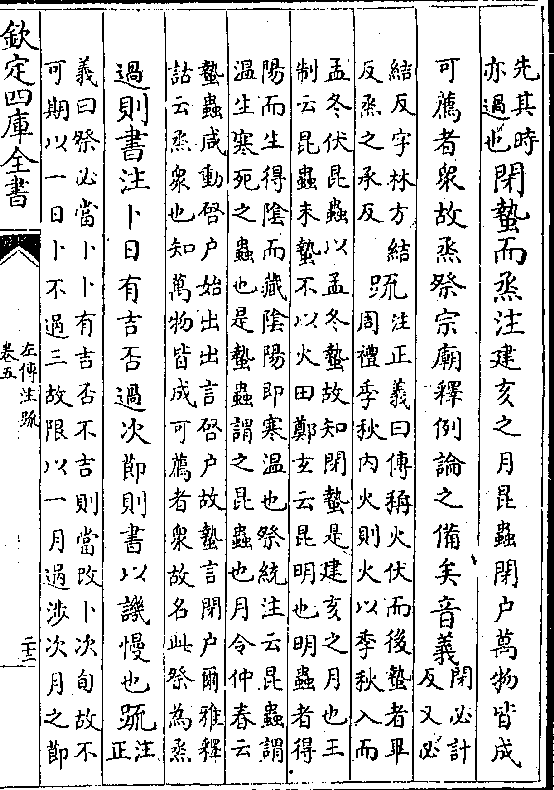 先其時
亦過也
閉蟄而烝注建亥之月昆蟲閉户萬物皆成
可薦者衆故烝祭宗廟釋例論之備矣音義
閉必計
反又必
結反字林方結
反烝之承反
疏
注正義曰傳稱火伏而後蟄者畢
周禮季秋内火則火以季秋入而
孟冬伏昆蟲以孟冬蟄故知閉蟄是建亥之月也王
制云昆蟲未蟄不以火田鄭玄云昆明也明蟲者得
陽而生得隂而藏隂陽即寒温也祭統注云昆蟲謂
温生寒死之蟲也是蟄蟲謂之昆蟲也月令仲春云
蟄蟲咸動啓户始出出言啓户故蟄言閉户爾雅釋
詁云烝衆也知萬物皆成可薦者衆故名此祭為烝
過則書注卜日有吉否過次節則書以譏慢也疏
注
正
義曰祭必當卜卜有吉否不吉則當改卜次旬故不
可期以一日卜不過三故限以一月過涉次月之節
欽定四庫全書
左傳注疏
卷五
二十三